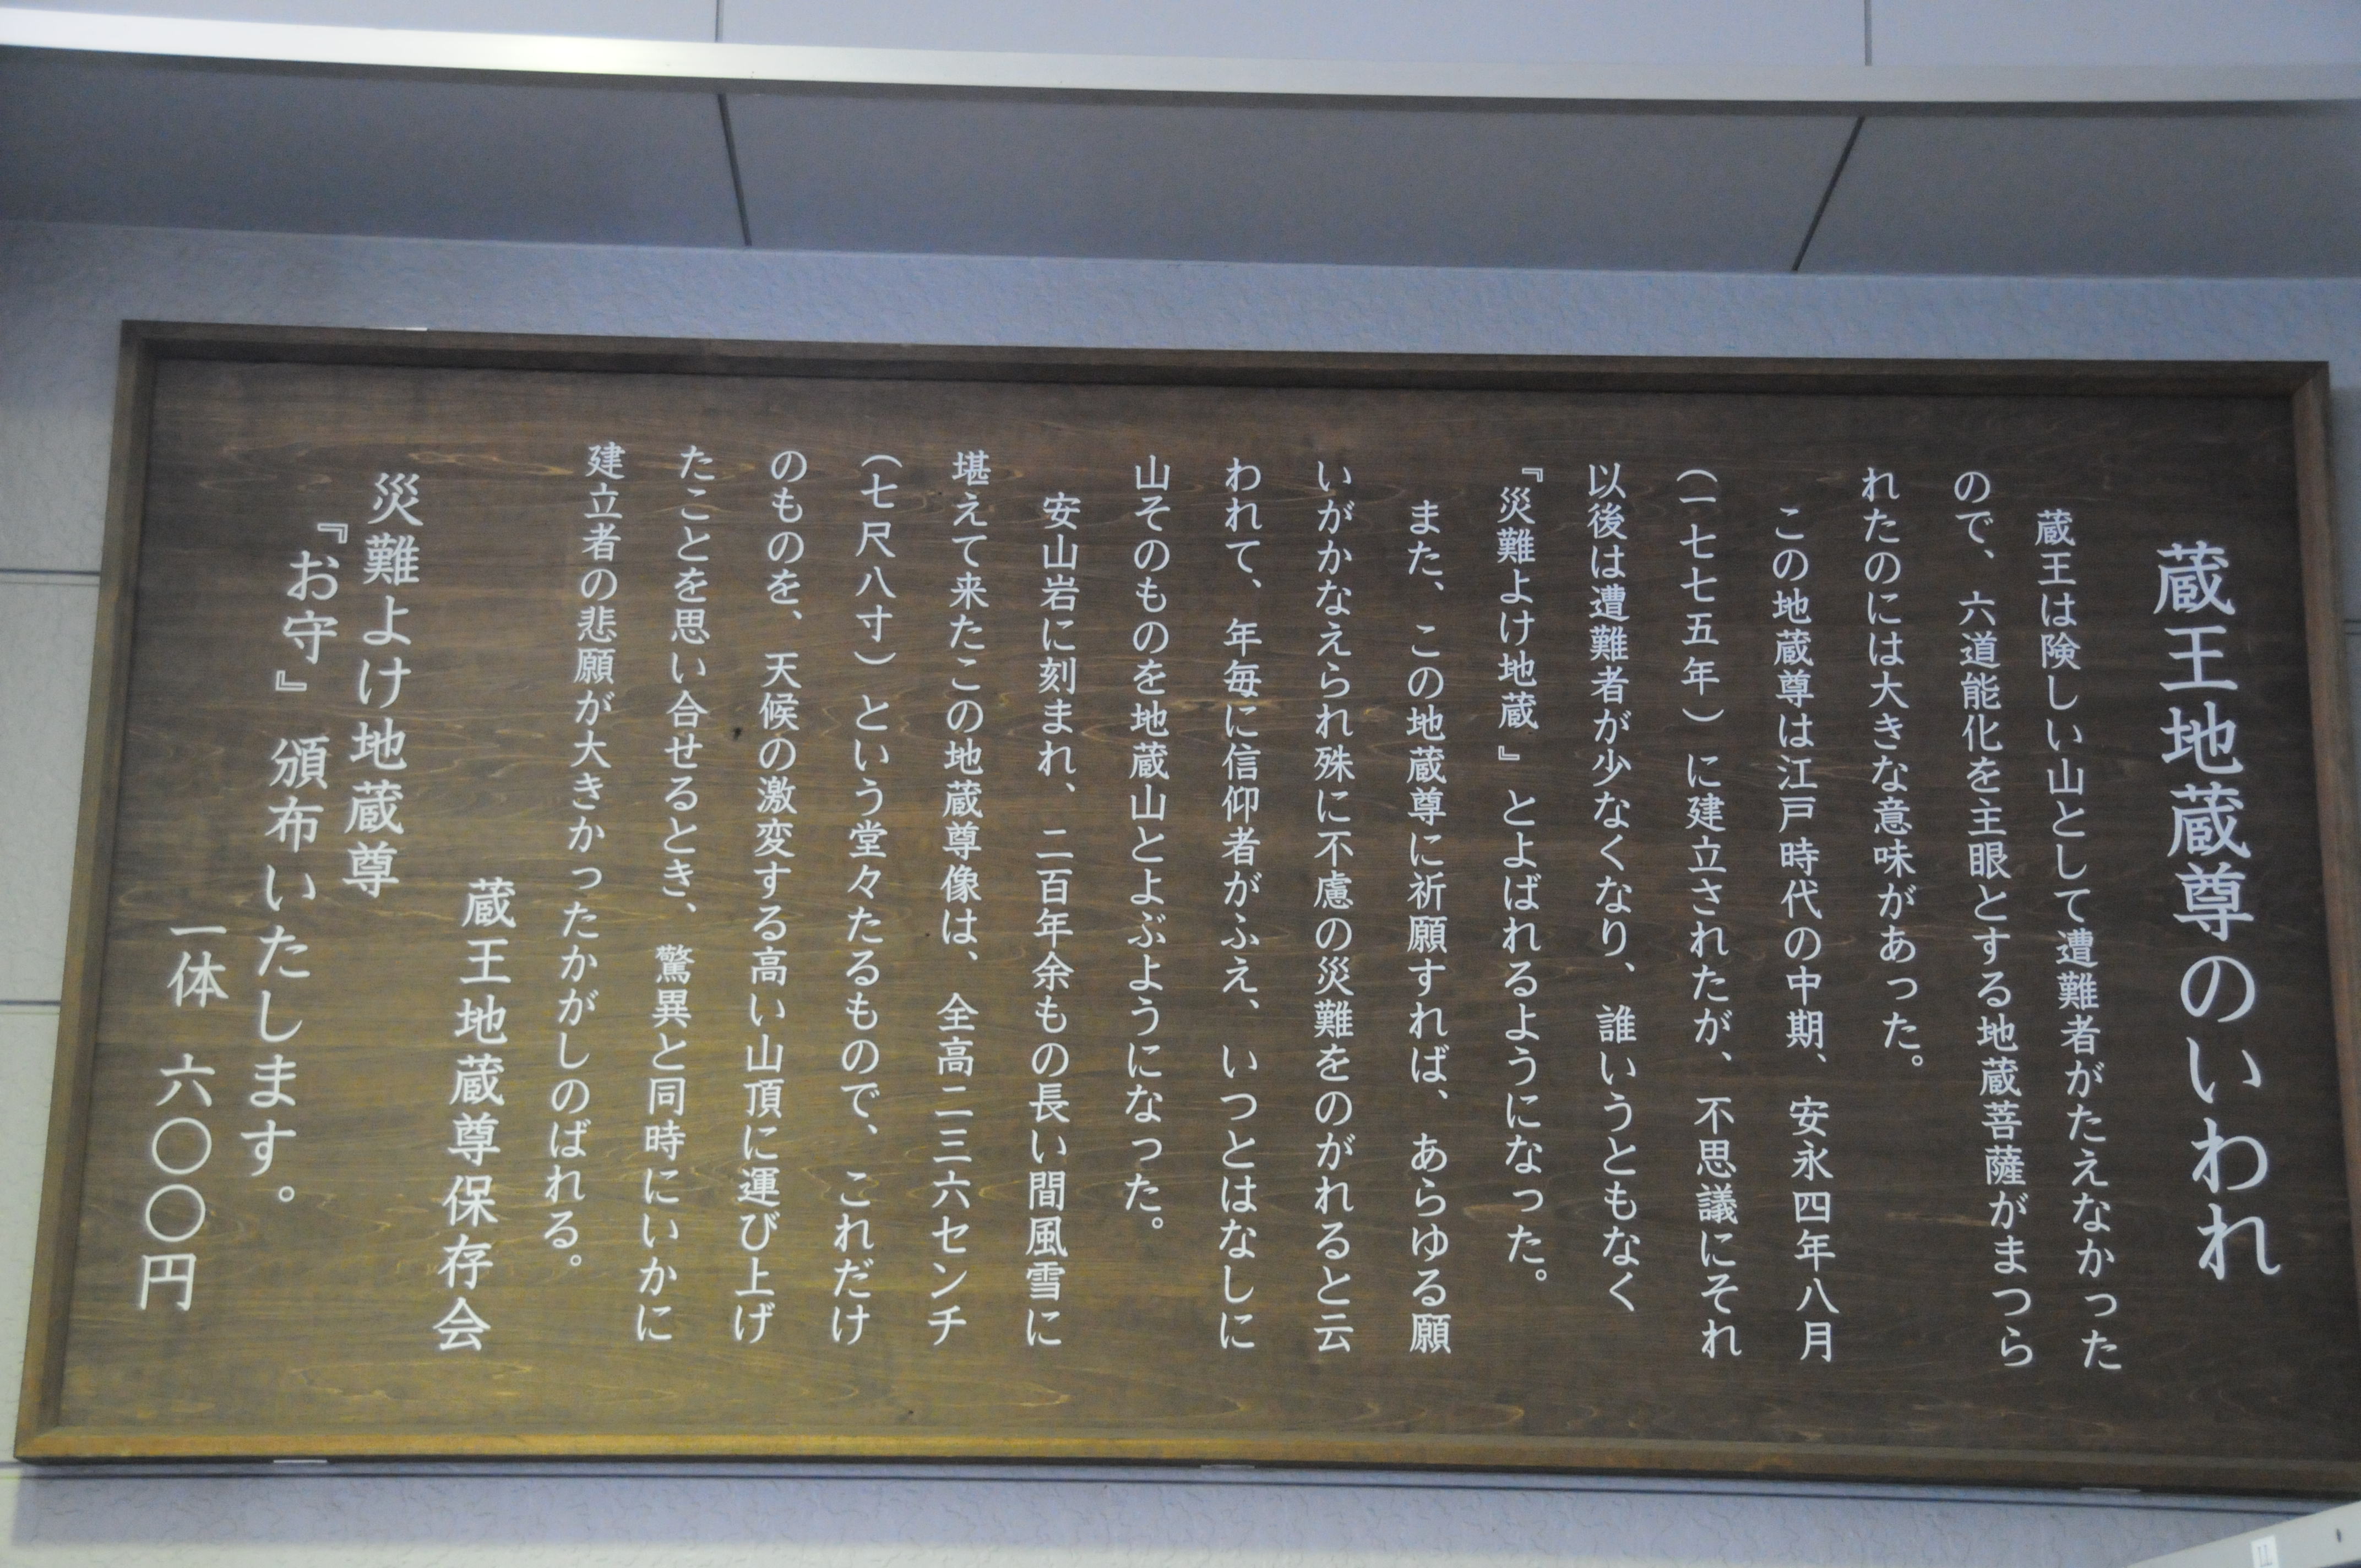 蔵王地蔵尊のいわれ
蔵王は険しい山として遭難者がたえなかった
ので、六道能化を主眼とする地蔵菩薩がまつら
れたのには大きな意味があった。
この地蔵尊は江戸時代の中期、安永四年八月
(一七七五年)に建立されたが、不思議にそれ
以後は遭難者が少なくなり、誰いうともなく
『災難よけ地蔵』とよばれるようになった。
また、この地蔵尊に祈願すれば、あらゆる願
いがかなえられ殊に不慮の災難をのがれると云
われて、年毎に信仰者がふえ、いつとはなしに
山そのものを地蔵山とよぶようになった。
安山岩に刻まれ、二百年余もの長い間風雪に
堪えて来たこの地蔵尊像は、全高二三六センチ
(七尺八寸)という堂々たるもので、これだけ
のものを、天候の激変する高い山頂に運び上げ
たことを思い合せるとき、驚異と同時にいかに
建立者の悲願が大きかったかがしのばれる。
蔵王地蔵尊保存会
災難よけ地蔵尊
『お守』頒布いたします。
一体 六〇〇円